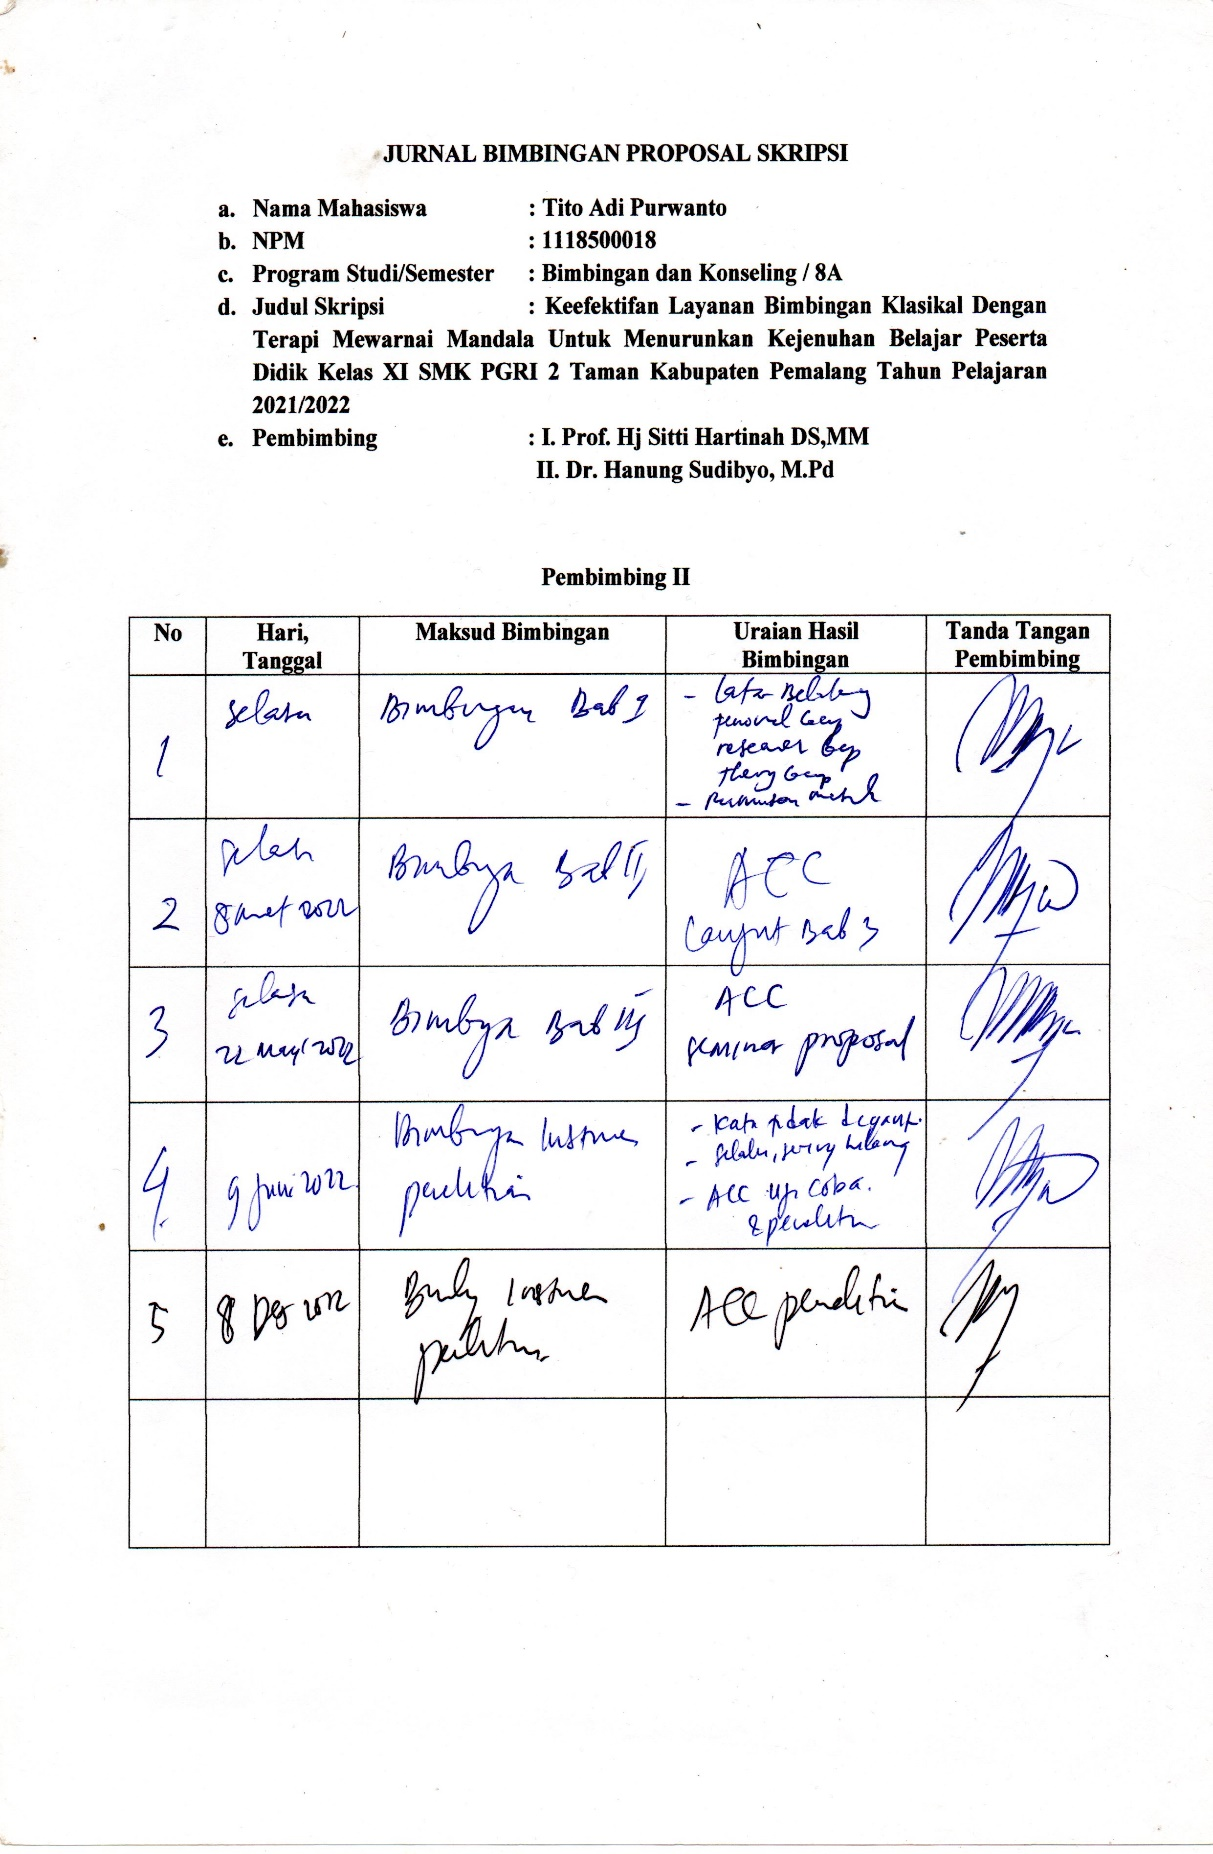 JURNAL BIMBINGAN PROPOSAL SKRIPSI
a. Nama Mahasiswa : Tito Adi Purwanto
b. NPM : 1118500018
c. Program Studi/Semester : Bimbingan dan Konseling / 8A
d. Judul Skripsi : Keefektifan Layanan Bimbingan Klasikal Dengan
Terapi Mewarnai Mandala Untuk Menurunkan Kejenuhan Belajar Peserta
Didik Kelas XI SMK PGRI 2 Taman Kabupaten Pemalang Tahun Pelajaran
2021/2022
e. Pembimbing : I. Prof. Hj Sitti Hartinah DS,MM
II. Dr. Hanung Sudibyo, M.Pd
Pembimbing II
No Hari, Tanggal Maksud Bimbingan Uraian Hasil Bimbingan Tanda Tangan Pembimbing
1 Selasa Bimbingan Bab I - Latar Belakang
research Gap
theory Gap
- Rumusan
2 Selasa Bimbingan Bab II ACC
8 Maret 2022 Lanjut Bab 3
3 Selasa Bimbingan Bab III ACC
22 2022 seminar proposal
4 Bimbingan Instrumen - Kata tidak
9 Juni 2022 penelitian - selalu, sering
- ACC uji coba.
& penelitian
5 8 Des 2022 Instrumen ACC penelitian
penelitian